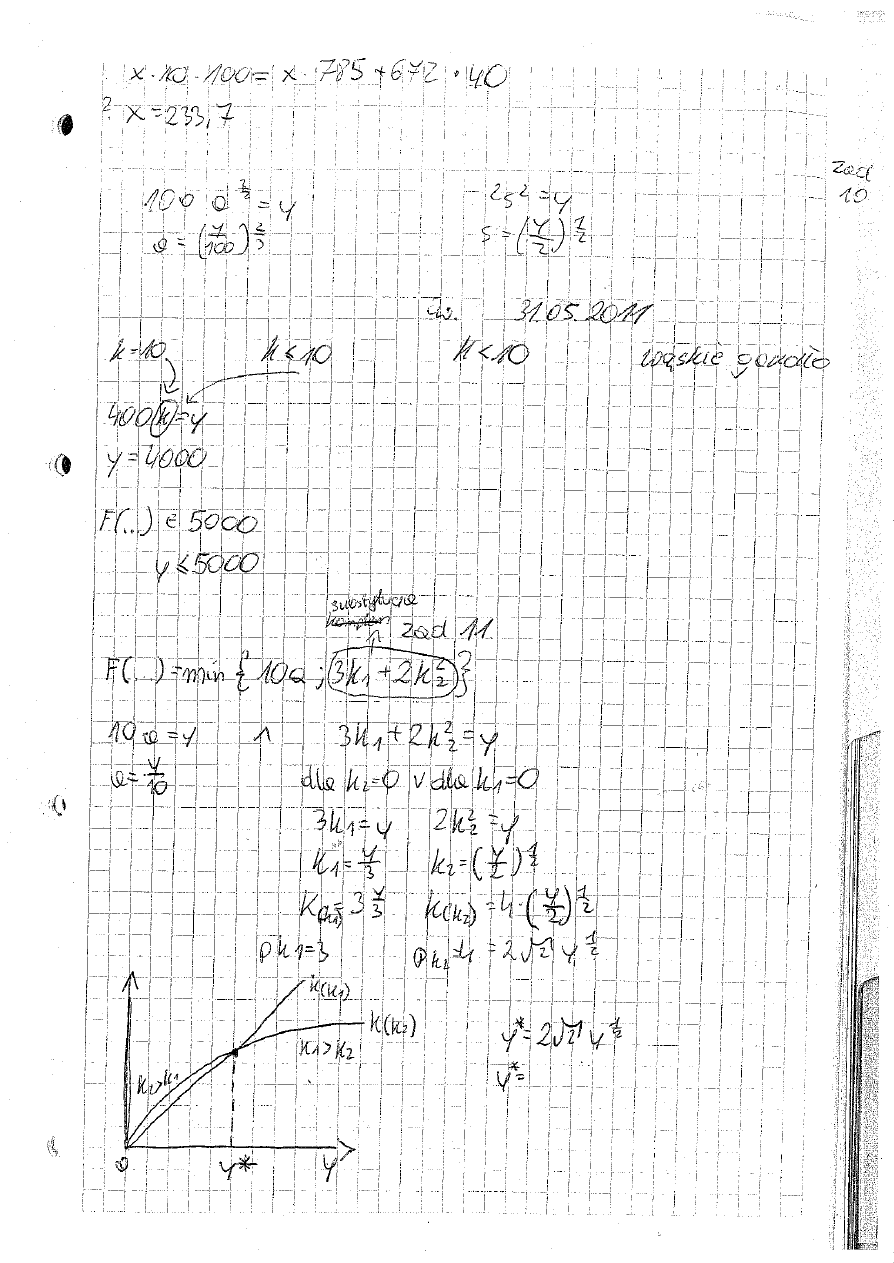 x·10·100= x·785+672·40
2. x=233,7
zad
10
100 a^{3/2} = y    2s² = y
a = (y/100)^{2/3}    s = (y/2)^{1/2}
ćw. 31.05.2011
k=10    k≤10    k<10    wąskie gardło
400 k = y
y = 4000
F(..) ∈ 5000
y ≤ 5000
substytucja
komplem
zad 11.
F(...) = min { 10a ; 3k₁ + 2k₂² }
10a = y    ∧    3k₁ + 2k₂² = y
a = y/10    dla k₂=0 ∨ dla k₁=0
3k₁ = y    2k₂² = y
k₁ = y/3    k₂ = (y/2)^{1/2}
K(k₁) = 3 y/3    k(k₂) = 4·(y/2)^{1/2}
pk₁=3    pk₂=4    = 2√2 y^{1/2}
k(k₁)
k(k₂)
k₁>k₂
k₂>k₁
y* = 2√2 y^{1/2}
y* =
0    y*    y